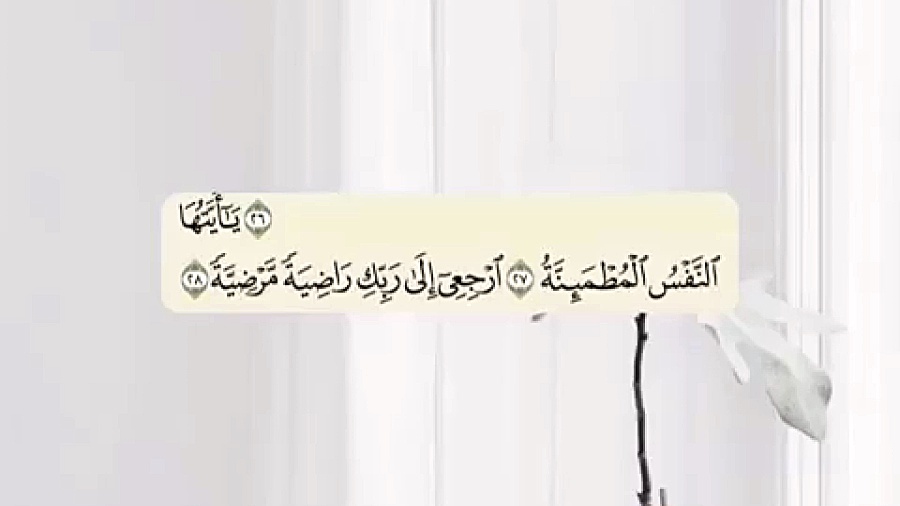 ٢٦ يَـٰٓأَيَّتُهَا
ٱلنَّفْسُ ٱلْمُطْمَئِنَّةُ ٢٧ ٱرْجِعِىٓ إِلَىٰ رَبِّكِ رَاضِيَةً مَّرْضِيَّةً ٢٨